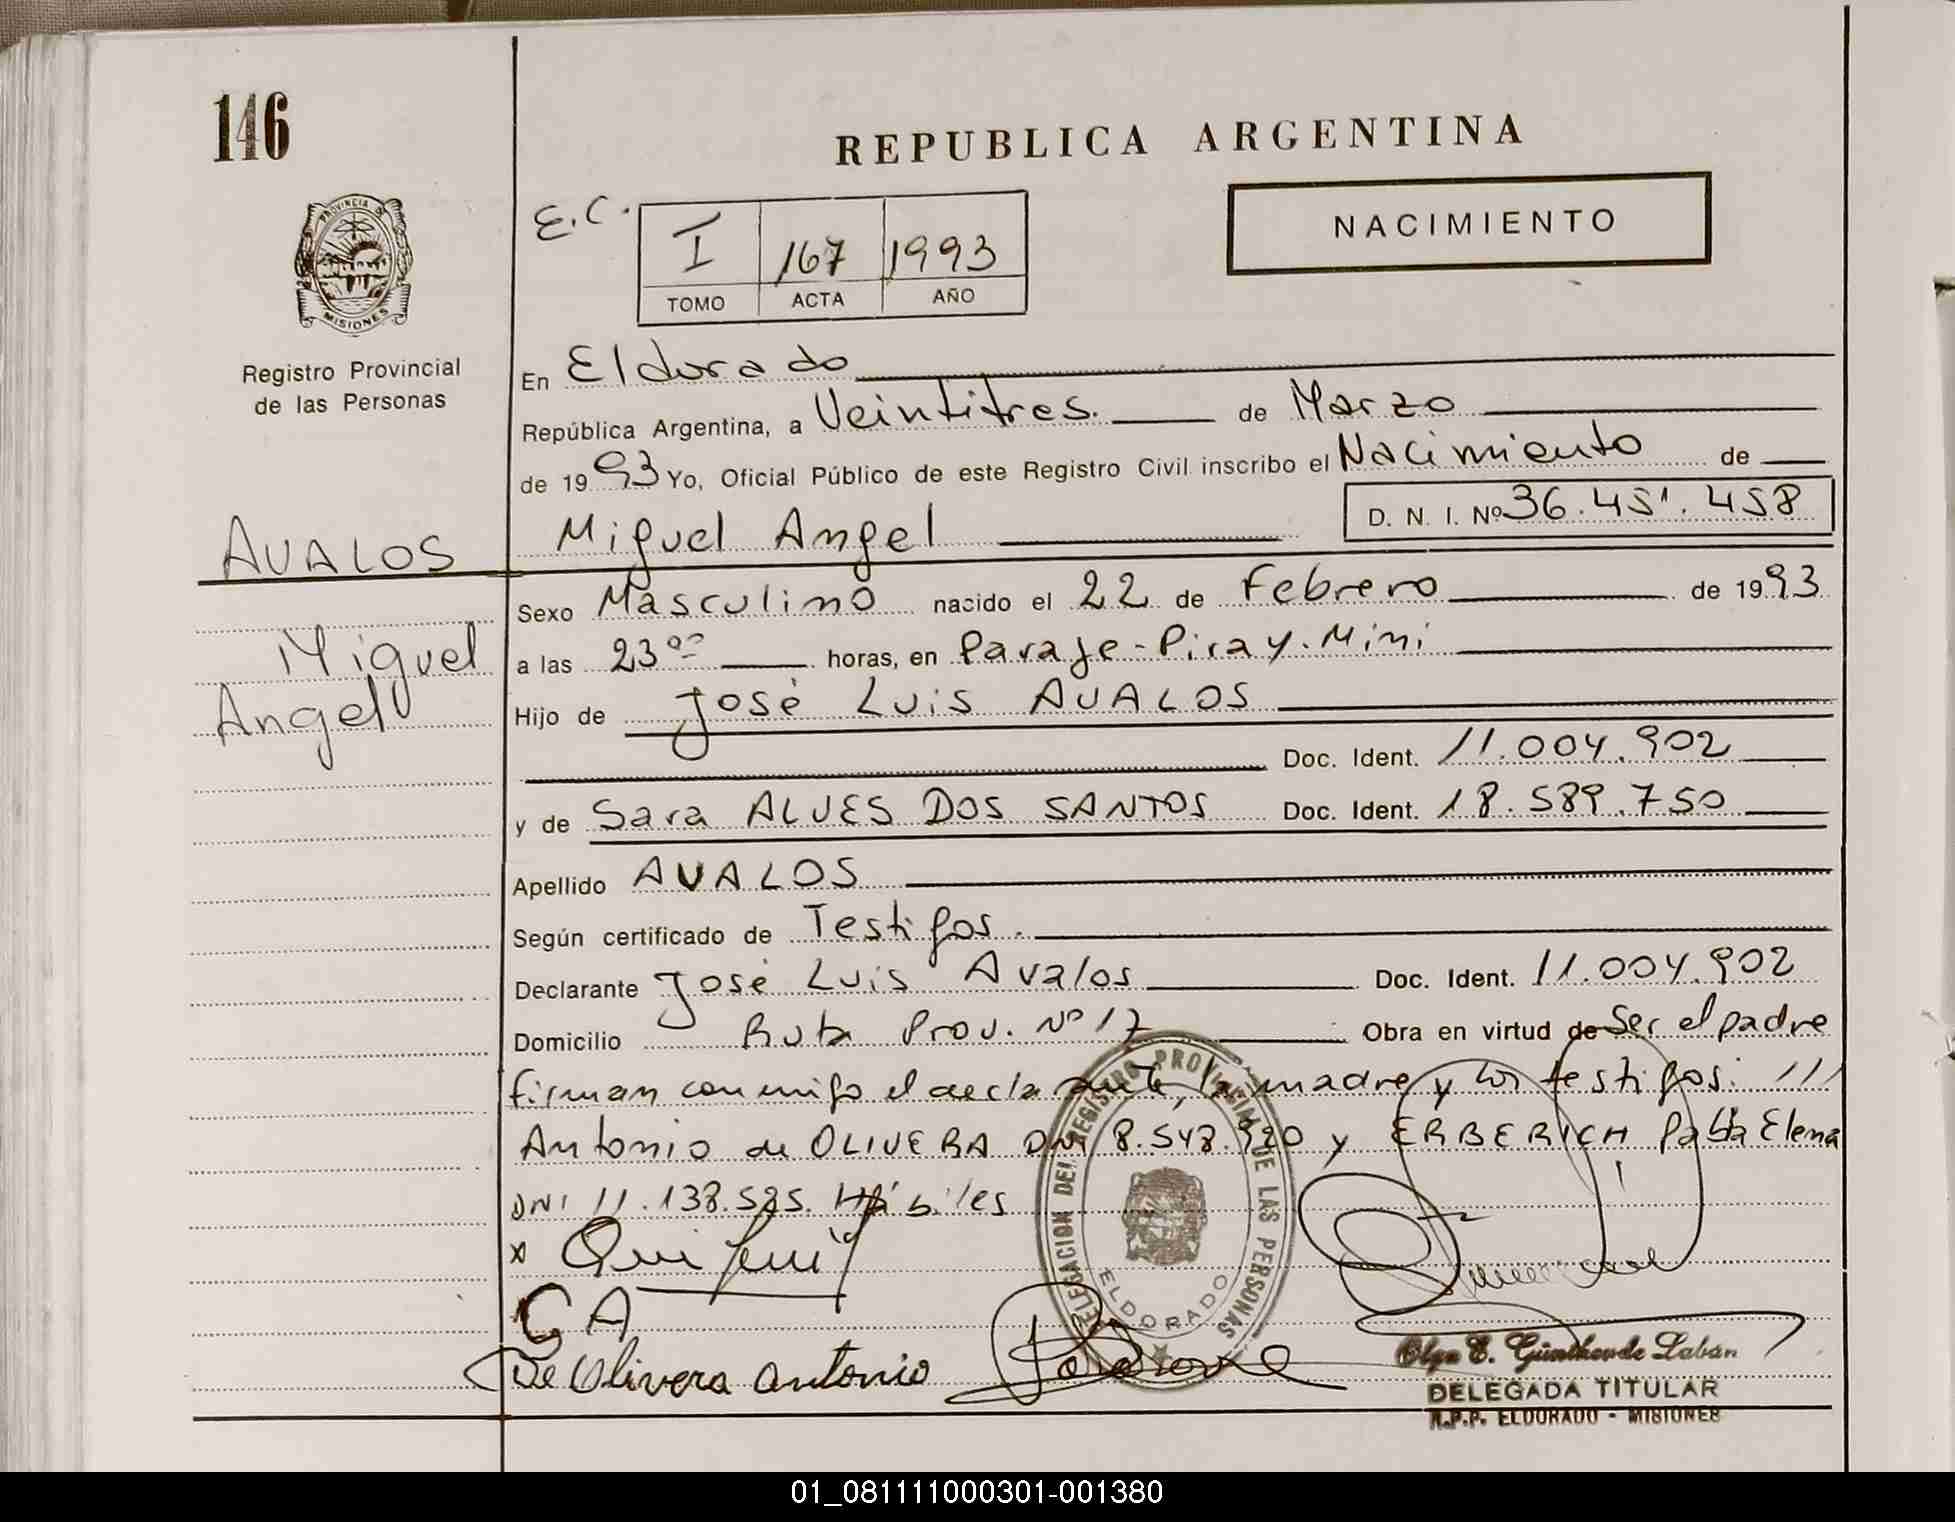 146
REPUBLICA ARGENTINA
PROVINCIA D
MISIONES
E.C.
I 167 1993
TOMO ACTA AÑO
NACIMIENTO
Registro Provincial
de las Personas
En Eldorado
República Argentina, a Veintitres. de Marzo
de 1993 Yo, Oficial Público de este Registro Civil inscribo el Nacimiento de
Miguel Angel D. N. I. Nº 36.451.458
AVALOS
Miguel
Angel
Sexo Masculino nacido el 22 de Febrero de 1993
a las 23 00 horas, en Paraje-Piray.Mini
Hijo de José Luis AVALOS
Doc. Ident. 11.004.902
y de Sara ALVES DOS SANTOS Doc. Ident. 18.589.750
Apellido AVALOS
Según certificado de Testigos.
Declarante José Luis Avalos Doc. Ident. 11.004.902
Domicilio Ruta Prov. Nº 17 Obra en virtud de Ser el padre
firman conmigo el declarante, la madre y los testigos. ///
Antonio de OLIVERA DNI 8.548.920 y ERBERICH Elena
DNI 11.138.525. Hábiles
x
De Olivera Antonio
DELEGACION DEL REGISTRO PROVINCIAL DE LAS PERSONAS
ELDORADO
Olga E. Laban
DELEGADA TITULAR
R.P.P. ELDORADO - MISIONES
01_081111000301-001380